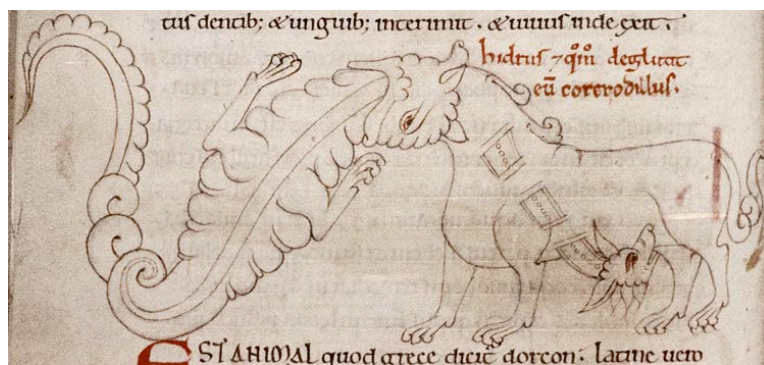 tis dentib; & unguib; interimit. & uiuus inde exit.
hidrus ⁊ qm̄ deglutit
eū corcrodillus.
EST ANIMAL quod grece dicit̄ dorcon. latine uero